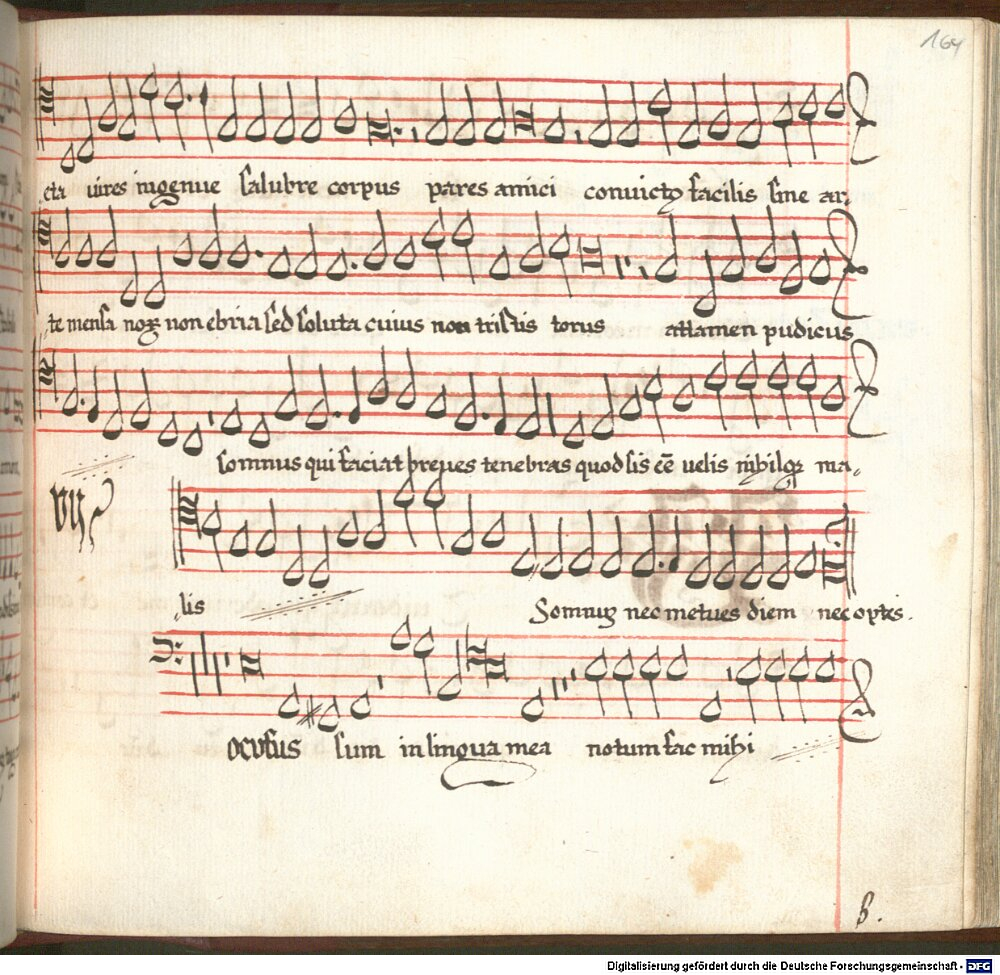 164
cta uires ingenue salubre corpus pares amici conuictꝰ facilis sine ar
te mensa nox non ebria sed soluta cuius non tristis torus attamen pudicus
somnus qui faciat breues tenebras quod sis eē uelis nihilqꝫ ma
vij
lis Somnuꝫ nec metues diem nec optes.
ocutus sum in lingua mea notum fac mihi
B.
Digitalisierung gefördert durch die Deutsche Forschungsgemeinschaft - DFG